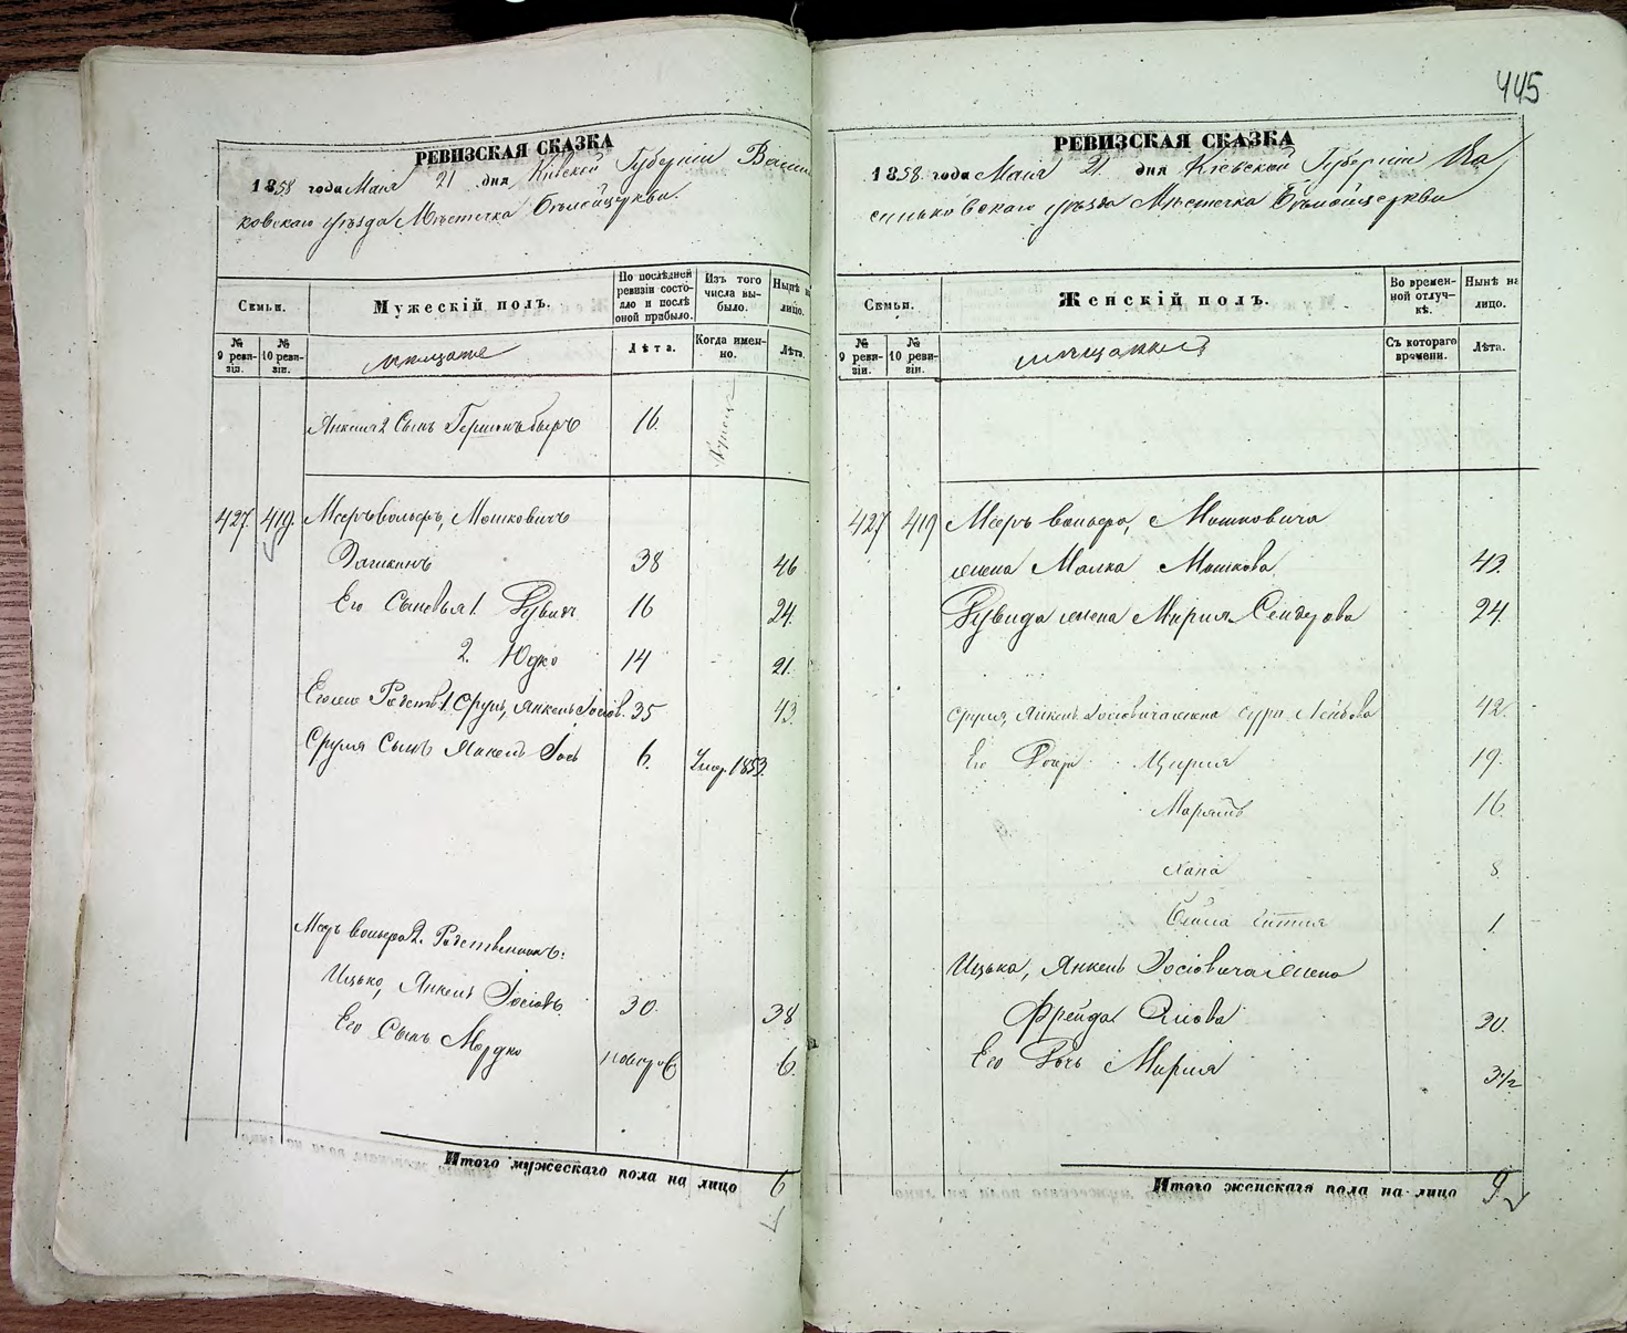 445
РЕВИЗСКАЯ СКАЗКА
1858 года Маія 21 дня Кіевской Губерніи Васил
ковскаго уѣзда Мѣстечка Бѣлойцеркви.
Семьи.
Мужескій полъ.
По послѣдней ревизіи состояло и послѣ оной прибыло.
Изъ того числа выбыло.
Нынѣ на лицо.
№ 9 ревизіи.
№ 10 ревизіи.
мѣщане
Лѣта.
Когда именно.
Лѣта.
Янкеля 2 Сынъ Гершонъ Беръ 16.
427. 419. Мееръ Вольфъ, Мошковичъ
38 46
Его Сыновья 1. Рувинъ 16 24.
2. Юдко 14 21.
Его Родств. 1 Сруль, Янкель Іосіов. 35 43.
Сруля Сынъ Янкель Іось 6. Умер. 1853.
Меер Вольфа 2. Родственникъ:
Ицько, Янкель Іосіовъ 30. 38
Его Сынъ Мордко 6.
Итого мужескаго пола на лицо 6
РЕВИЗСКАЯ СКАЗКА
1858. года Маія 21 дня Кіевской Губерніи Ва
сильковскаго уѣзда Мѣстечка Бѣлойцеркви
Семьи.
Женскій полъ.
Во временной отлучкѣ.
Нынѣ на лицо.
№ 9 ревизіи.
№ 10 ревизіи.
мѣщанки
Съ котораго времени.
Лѣта.
427 419 Мееръ Вольфа, Мошковича
жена Малка Мошкова 43.
Рувина жена Мирля Сендерова 24.
Сруля, Янкель Іосіовича жена Сура Лейбова 42.
Его Дочери Цирля 19.
Марьямъ 16.
Хана 8
Бейла Гитля 1.
Ицька, Янкель Іосіовича жена
Фрейда 30.
Его Дочь Мирля 3 1/2
Итого женскаго пола на лицо 9